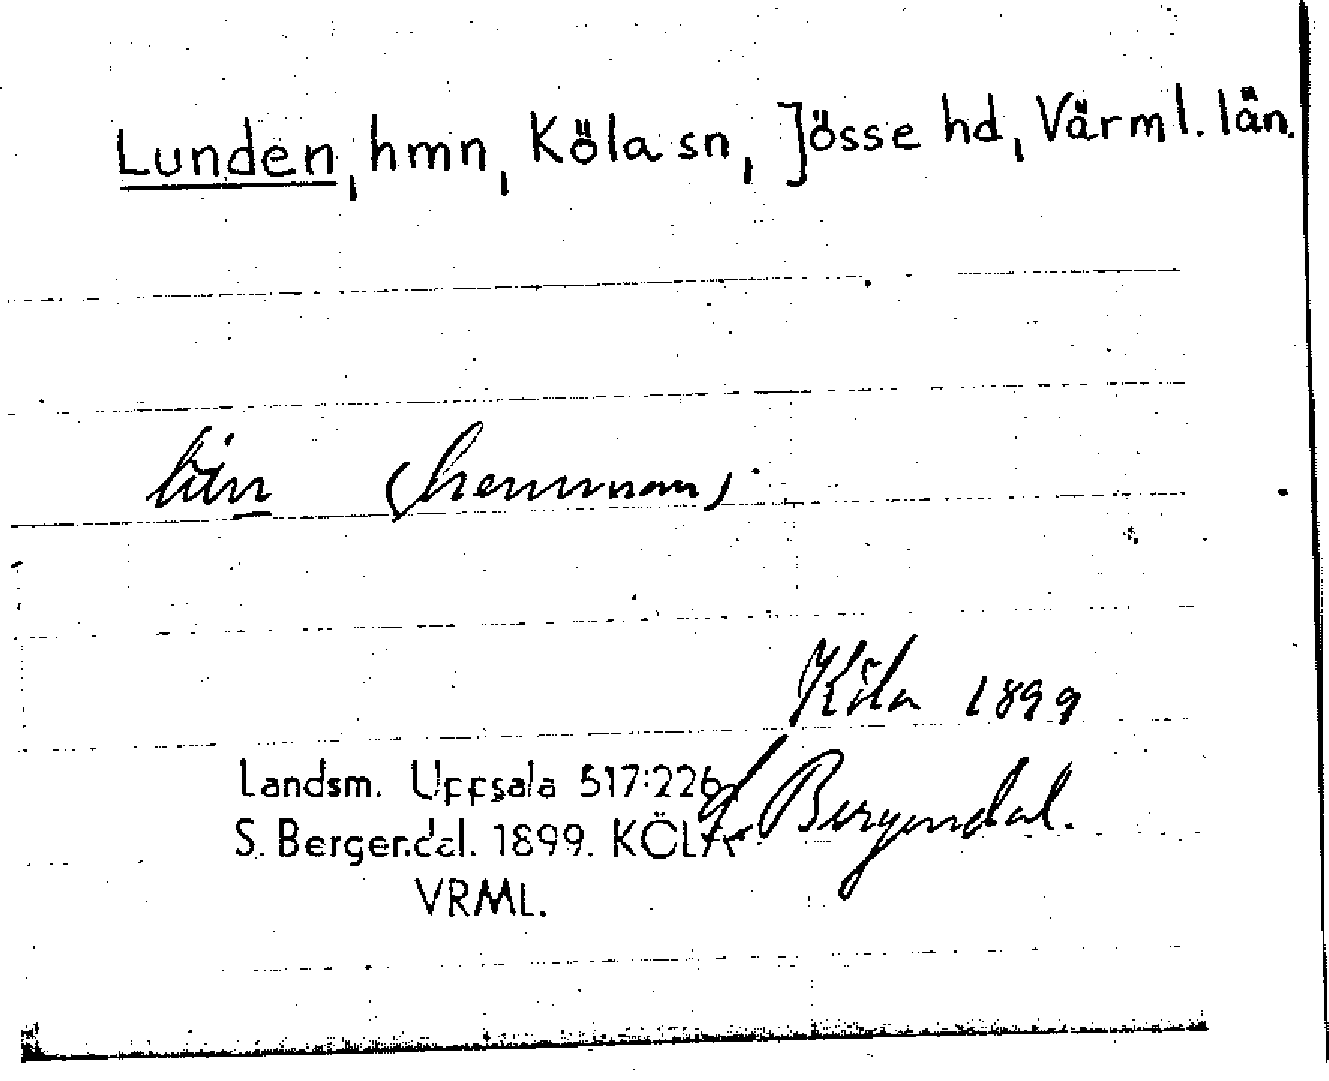 Lunden, hmn, Köla sn, Jösse hd, Värml. län.
(hemman)
Köla 1899
Landsm. Uppsala 517:226
S. Bergendal.
S. Bergendal. 1899. KÖLA
VRML.